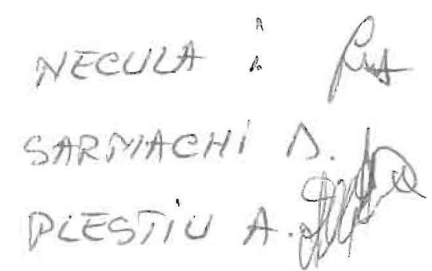 NECULA :
SARMACHI D.
PLESTIU A.